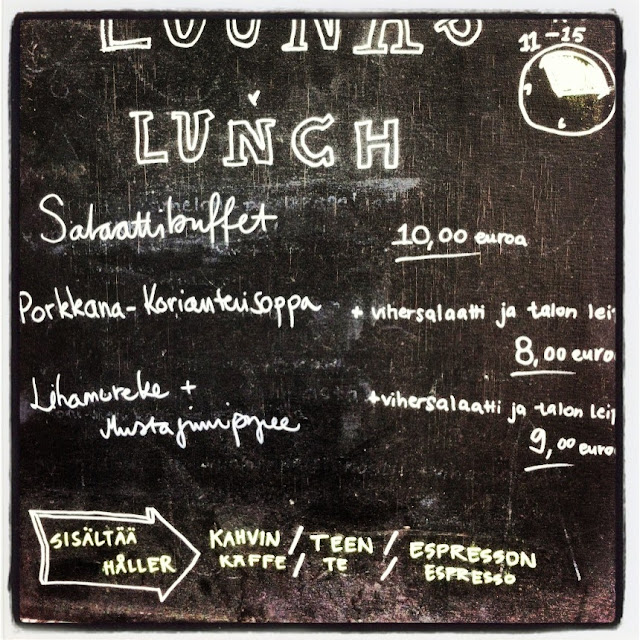 LOUNAS
11-15
LUNCH
Salaattibuffet 10,00 euroa
Porkkana-Korianterisoppa + vihersalaatti ja talon lei
8,00 euro
Lihamureke + +vihersalaatti ja talon leip
Mustajuuripyree 9,00 euro
SISÄLTÄÄ KAHVIN / TEEN / ESPRESSON
HÅLLER KAFFE / TE / ESPRESSO